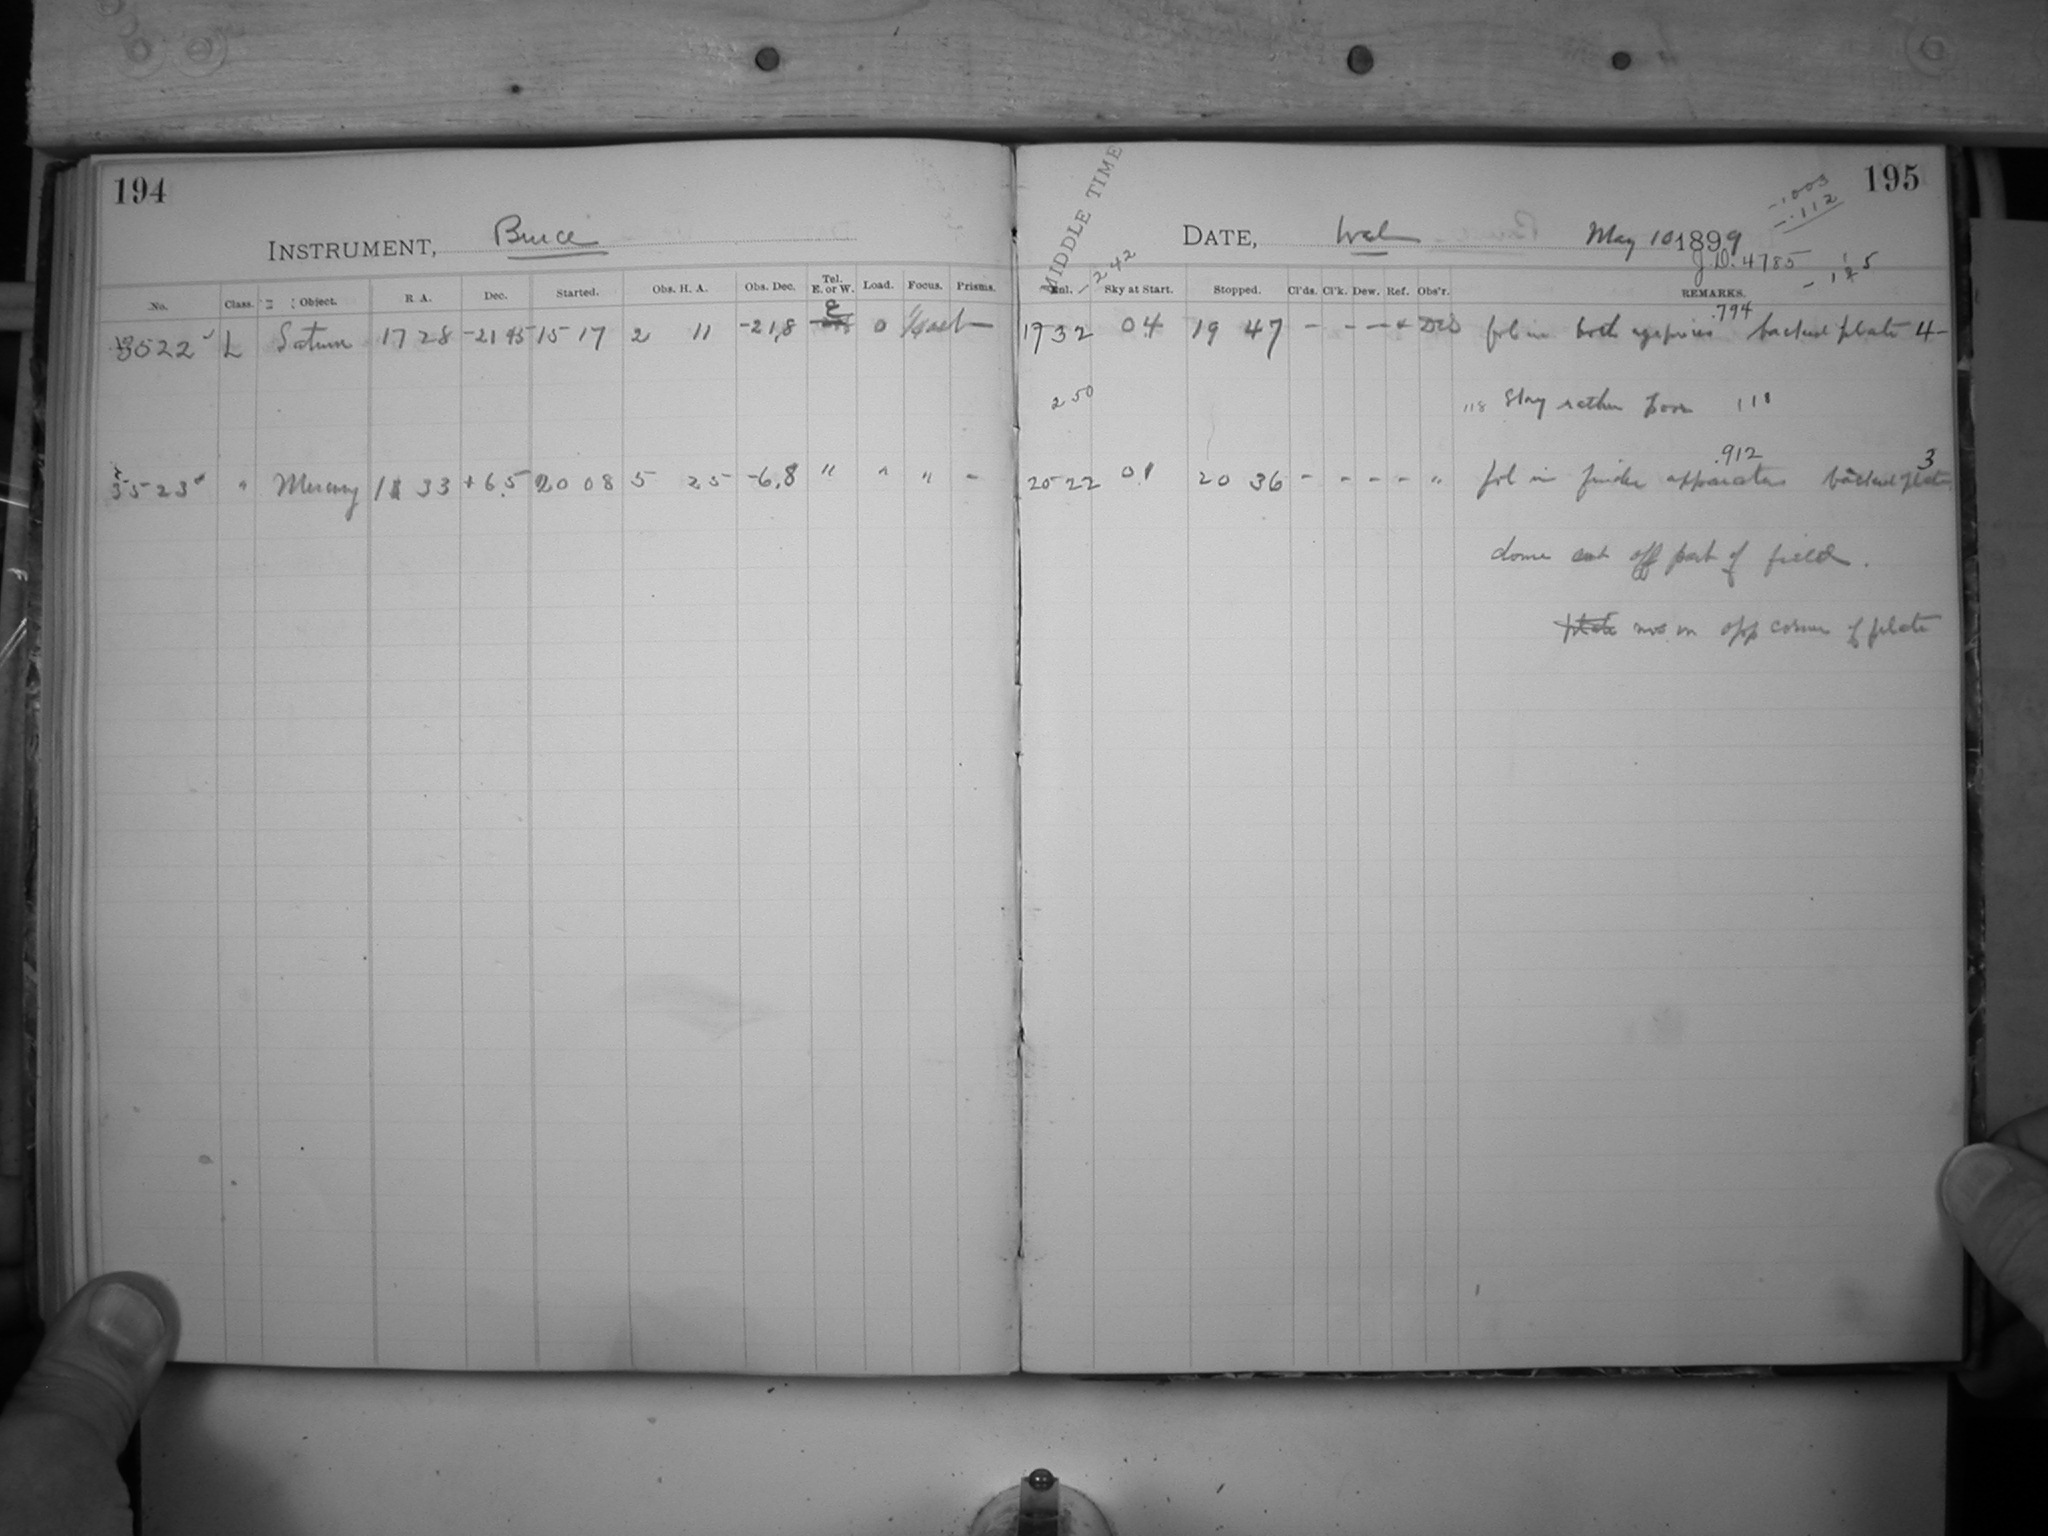 194
INSTRUMENT, Bruce
No. Class. Object. R. A. Dec. Started. Obs. H. A. Obs. Dec. Tel. E. or W. Load. Focus. Prisms.
3522 L Saturn 17 28 -21 45 15 17 2 11 -21,8 E 0
3523 " Mercury 1 33 +6.5 20 08 5 25 -6,8 " " " -
195
MIDDLE TIME
-.003
-.112
DATE, Wed May 10 1899
J.D. 4785
-242
Sky at Start. Stopped. Cl'ds. Cl'k. Dew. Ref. Obs'r. REMARKS.
.794
1932 04 19 47 - - - fol in both backed plate 4-
2 50 118 Story rather poor 111
.912
3
20 22 01 20 36 - - - - " fol in finder apparatus backed plate
dome cut off part of field.
in opp corner of plate